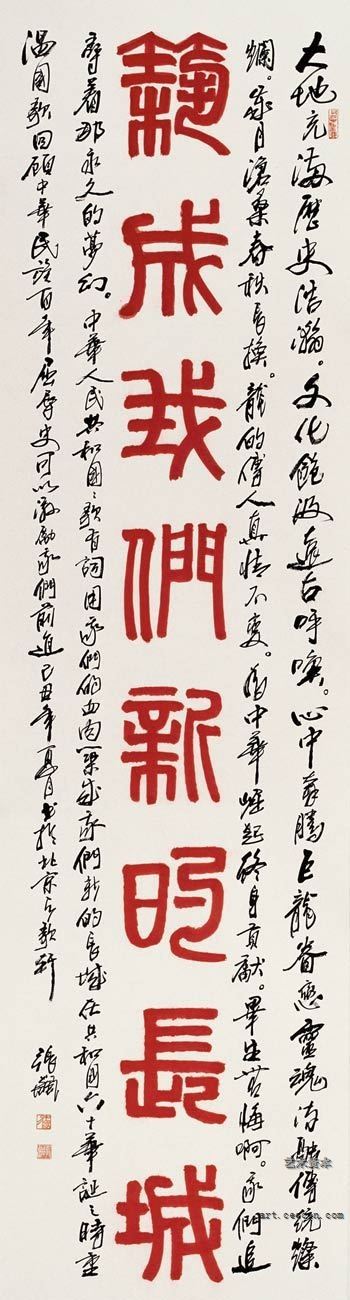 大地充滿歷史浩瀚。文化飽汲遠古呼喚。心中奔騰巨龍眷戀靈魂傳統燦
爛。歲月滄桑春秋長換。龍的傳人真情不變。為中華崛起終身貢獻。畢生無悔啊。我們追
築成我們新的長城
尋着那永久的夢幻。中華人民共和國々歌有詞用我們的血肉築成我們新的長城在共和國六十華誕之時重
溫國歌回顧中華民族百年屈辱史可以激勵我們前進己丑年夏月書於北京
張飆